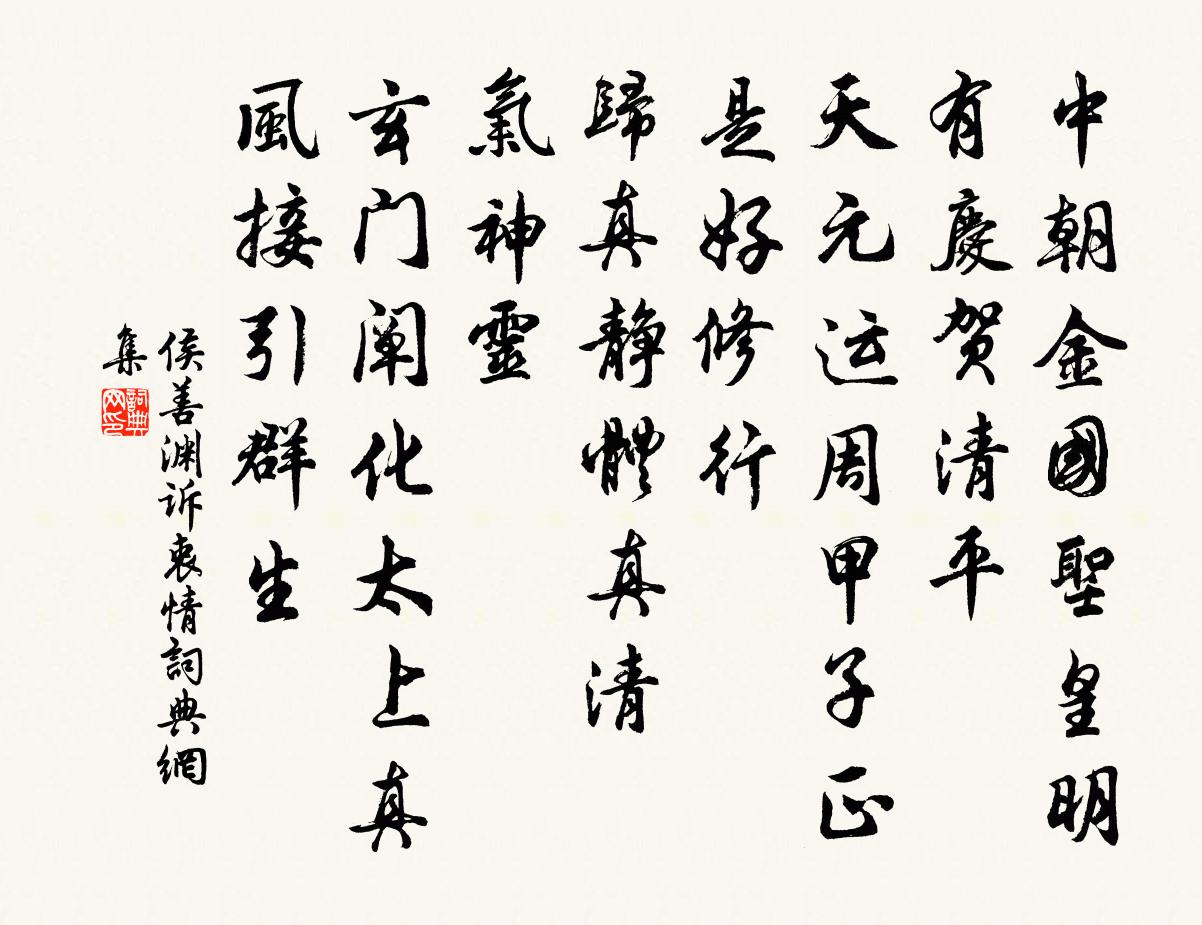 中朝金國聖皇明
有慶贺清平
天元运周甲子正
是好修行
歸真静體真清
氣神靈
玄门阐化太上真
風接引群生
侯善渊诉衷情詞典網
集
詞典网印